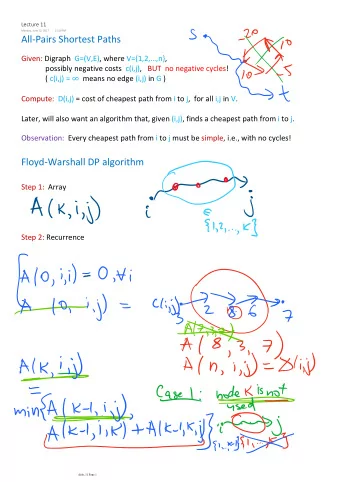 Lecture 11
All-Pairs Shortest Paths
Given: Digraph G=(V,E), where V={1,2,...,n},
possibly negative costs c(i,j), BUT no negative cycles!
( c(i,j) = ∞ means no edge (i,j) in G )
Compute: D(i,j) = cost of cheapest path from i to j, for all i,j in V.
Later, will also want an algorithm that, given (i,j), finds a cheapest path from i to j.
Observation: Every cheapest path from i to j must be simple, i.e., with no cycles!
s
-20
10
10
-5
t
Floyd-Warshall DP algorithm
Step 1: Array
A(k,i,j)
i
j
∈
{1,2,...,k}
Step 2: Recurrence
A(0,i,i) = 0, ∀i
A (0, i,j) = c(i,j)
3 2 8 6 7
A(8, 3, 7)
A(n, i,j) = D(i,j)
A(k,i,j)
=
min{A(k-1,i,j),
A(k-1,i,k) + A(k-1,k,j)}
Case 1: node k is not
used
i
j